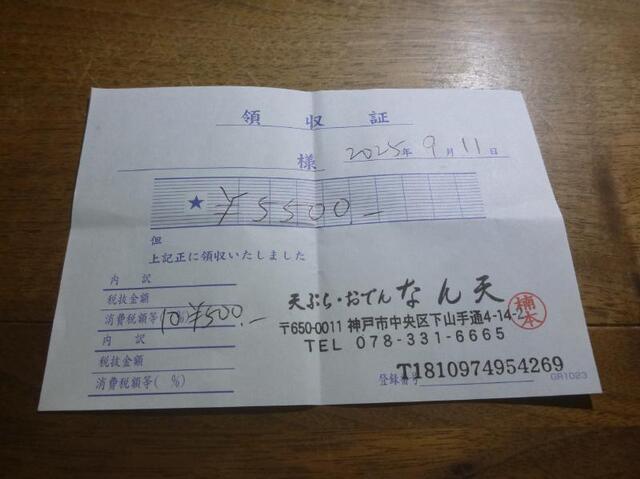 領収証
様 2025年9月11日
★ ¥5500.-
但
上記正に領収いたしました
内訳
税抜金額
消費税額等(10%) ¥500.-
内訳
税抜金額
消費税額等( %)
天ぷら・おでん なん天
〒650-0011 神戸市中央区下山手通4-14-2
楠本
TEL 078-331-6665
登録番号 T1810974954269
GR1023